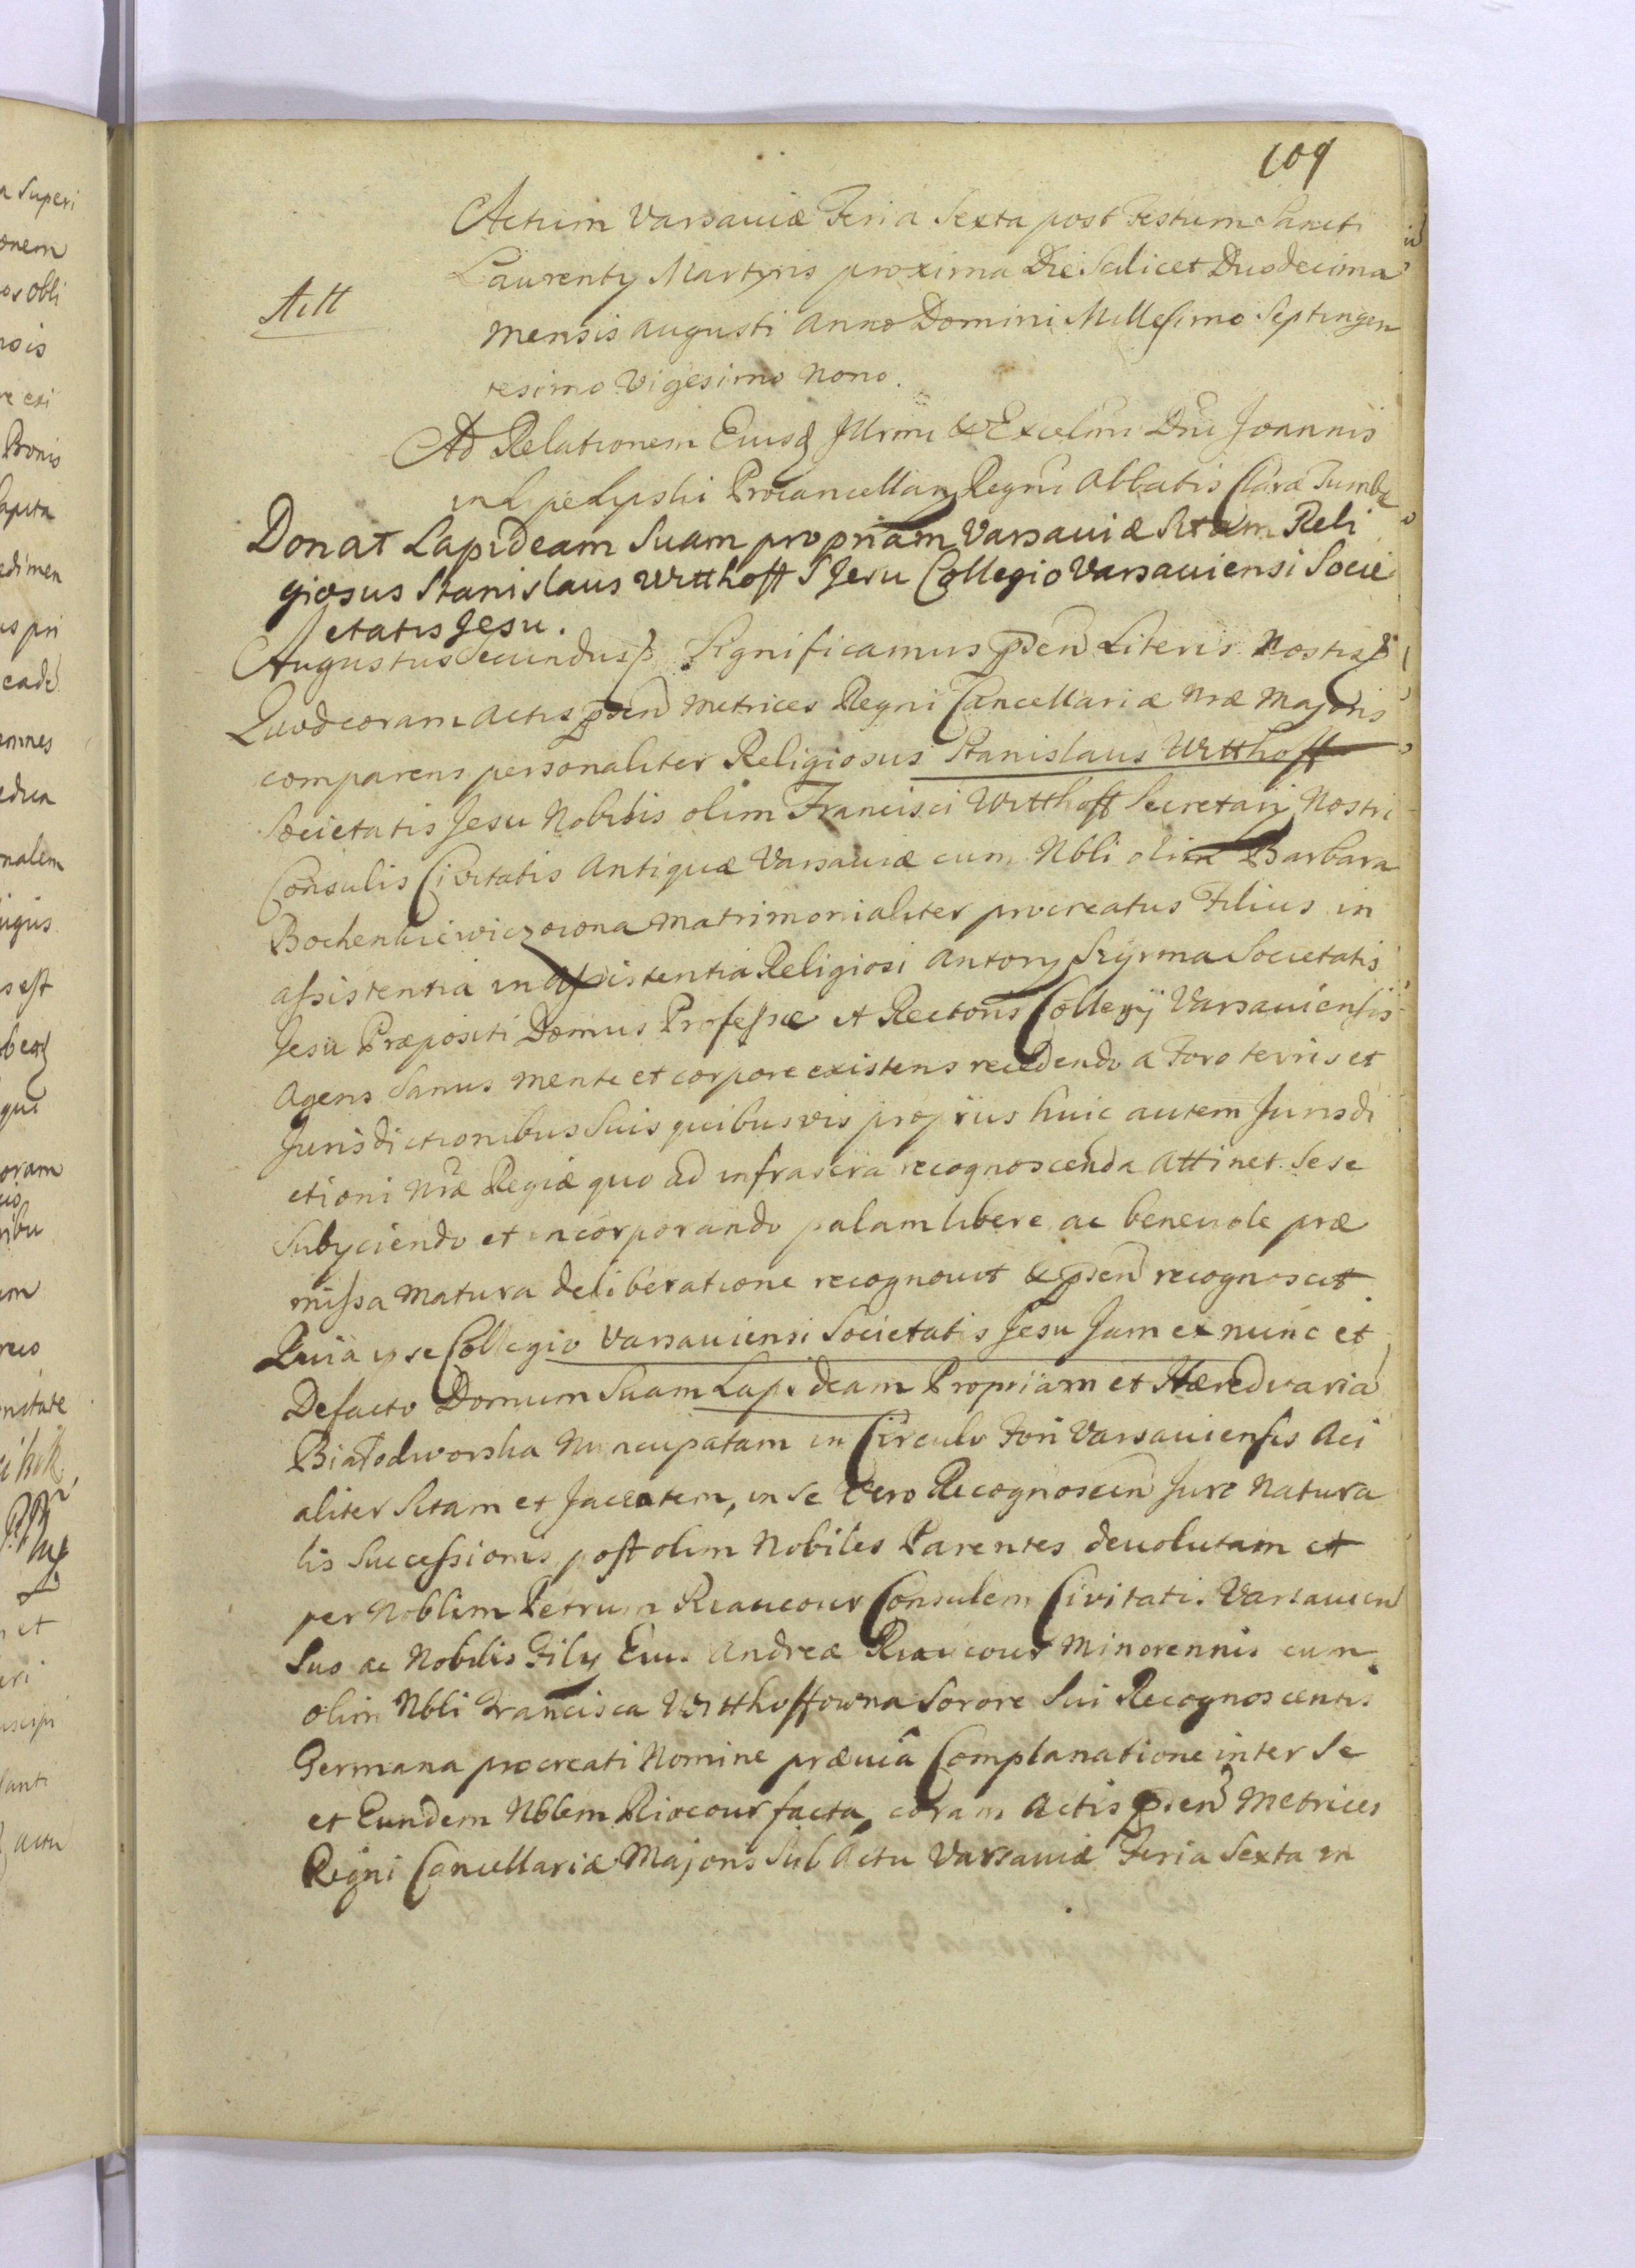 109
Actum Varsaviæ Feria Sexta post Festum Sancti
Laurentÿ Martyris proxima Die Scilicet Duodecima
Actt
mensis Augusti Anno Domini Millesimo Septingen
tesimo Vigesimo Nono.
Ad Relationem Eiusq Illrmi & Excelmi Dni Joannis
in Lipe Lipski Procancellarÿ Regni Abbatis Claræ Tumbæ
Donat Lapideam Suam propriam Varsaviæ Sitam Reli
giosus Stanislaus Witthoff S Jesu Collegio Varsaviensi Socie
etatis Jesu.
Augustus Secundus Significamus pñsen Literis Nostris
Quod coram Actis pñsen Metrices Regni Cancellariæ Nræ Majoris
comparens personaliter Religiosus Stanislaus Witthoff
Societatis Jesu Nobilis olim Francisci Witthoff Secretarÿ Nostri
Consulis Civitatis Antiquæ Varsaviæ cum Nbli olim Barbara
Bochenkiewiczowna matrimonialiter procreatus Filius in
assistentia in Assistentia Religiosi Antonÿ Szÿrma Societatis
Jesu Præpositi Domus Professæ et Rectoris Collegÿ Varsaviensis
Agens Sanus mente et corpore existens recedendo a Foro terris et
Jurisdictionibus Suis quibusvis proprius huic autem Jurisdi
ctioni Nræ Regiæ quo ad infrascra recognoscenda Attinet Sese
Subÿciendo et incorporando palam libere ac benevole præ
missa matura deliberatione recognovit & pñsen recognoscit
Quia ipse Collegio Varsaviensi Societatis Jesu Jam ex nunc et
Defacto Domum Suam Lapideam Propriam et Hæreditaria
Białodworska Nuncupatam in Circulo Fori Varsaviensis Aci
aliter Sitam et Jacentem, in Se Vero Recognoscen Jure Natura
lis Successionis post olim Nobiles Parentes devolutam et
per Noblem Petrum Riaucour Consulem Civitatis Varsavien
Suo ac Nobilis Filÿ Eius Andreæ Riaucour Minorennis cum
olim Nbli Francisca Witthoffowna Sorore Sui Recognoscentis
Germana procreati Nomine præviâ Complanatione inter Se
et Eundem Nblem Riocour facta, coram Actis pñsen Metrices
Regni Cancellariæ Majoris Sub Actu Varsaviæ Feria Sexta in